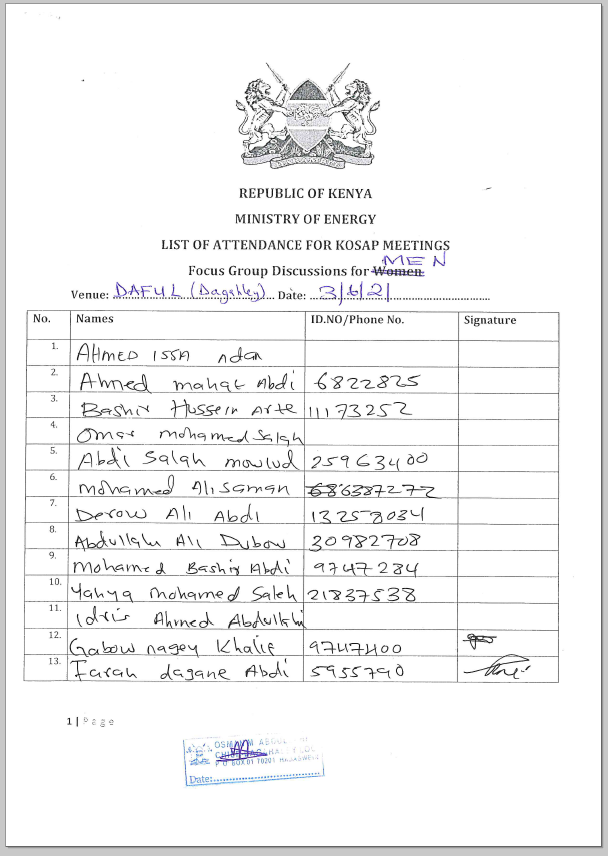 REPUBLIC OF KENYA
MINISTRY OF ENERGY
LIST OF ATTENDANCE FOR KOSAP MEETINGS
MEN
Focus Group Discussions for Women
Venue: DAFUL (Dagahley) Date: 3/6/21
No. Names ID.NO/Phone No. Signature
1. AHMED ISSA Adan
2. Ahmed mahat Abdi 6822825
3. Bashir Hussein Arte 11173252
4. Omar mohamed Salah
5. Abdi Salah mowlud 25963400
6. mohamed Ali Saman 686387272
7. Derow Ali Abdi 13258034
8. Abdullahi Ali Dubow 30982708
9. Mohamed Bashir Abdi 9747284
10. Yahya mohamed Saleh 21837538
11. Idris Ahmed Abdullahi
12. Gabow nagey Khalif 9747400
13. Farah dagane Abdi 5955790
1 | Page
OSMAN
P O BOX 01 70201
Date: